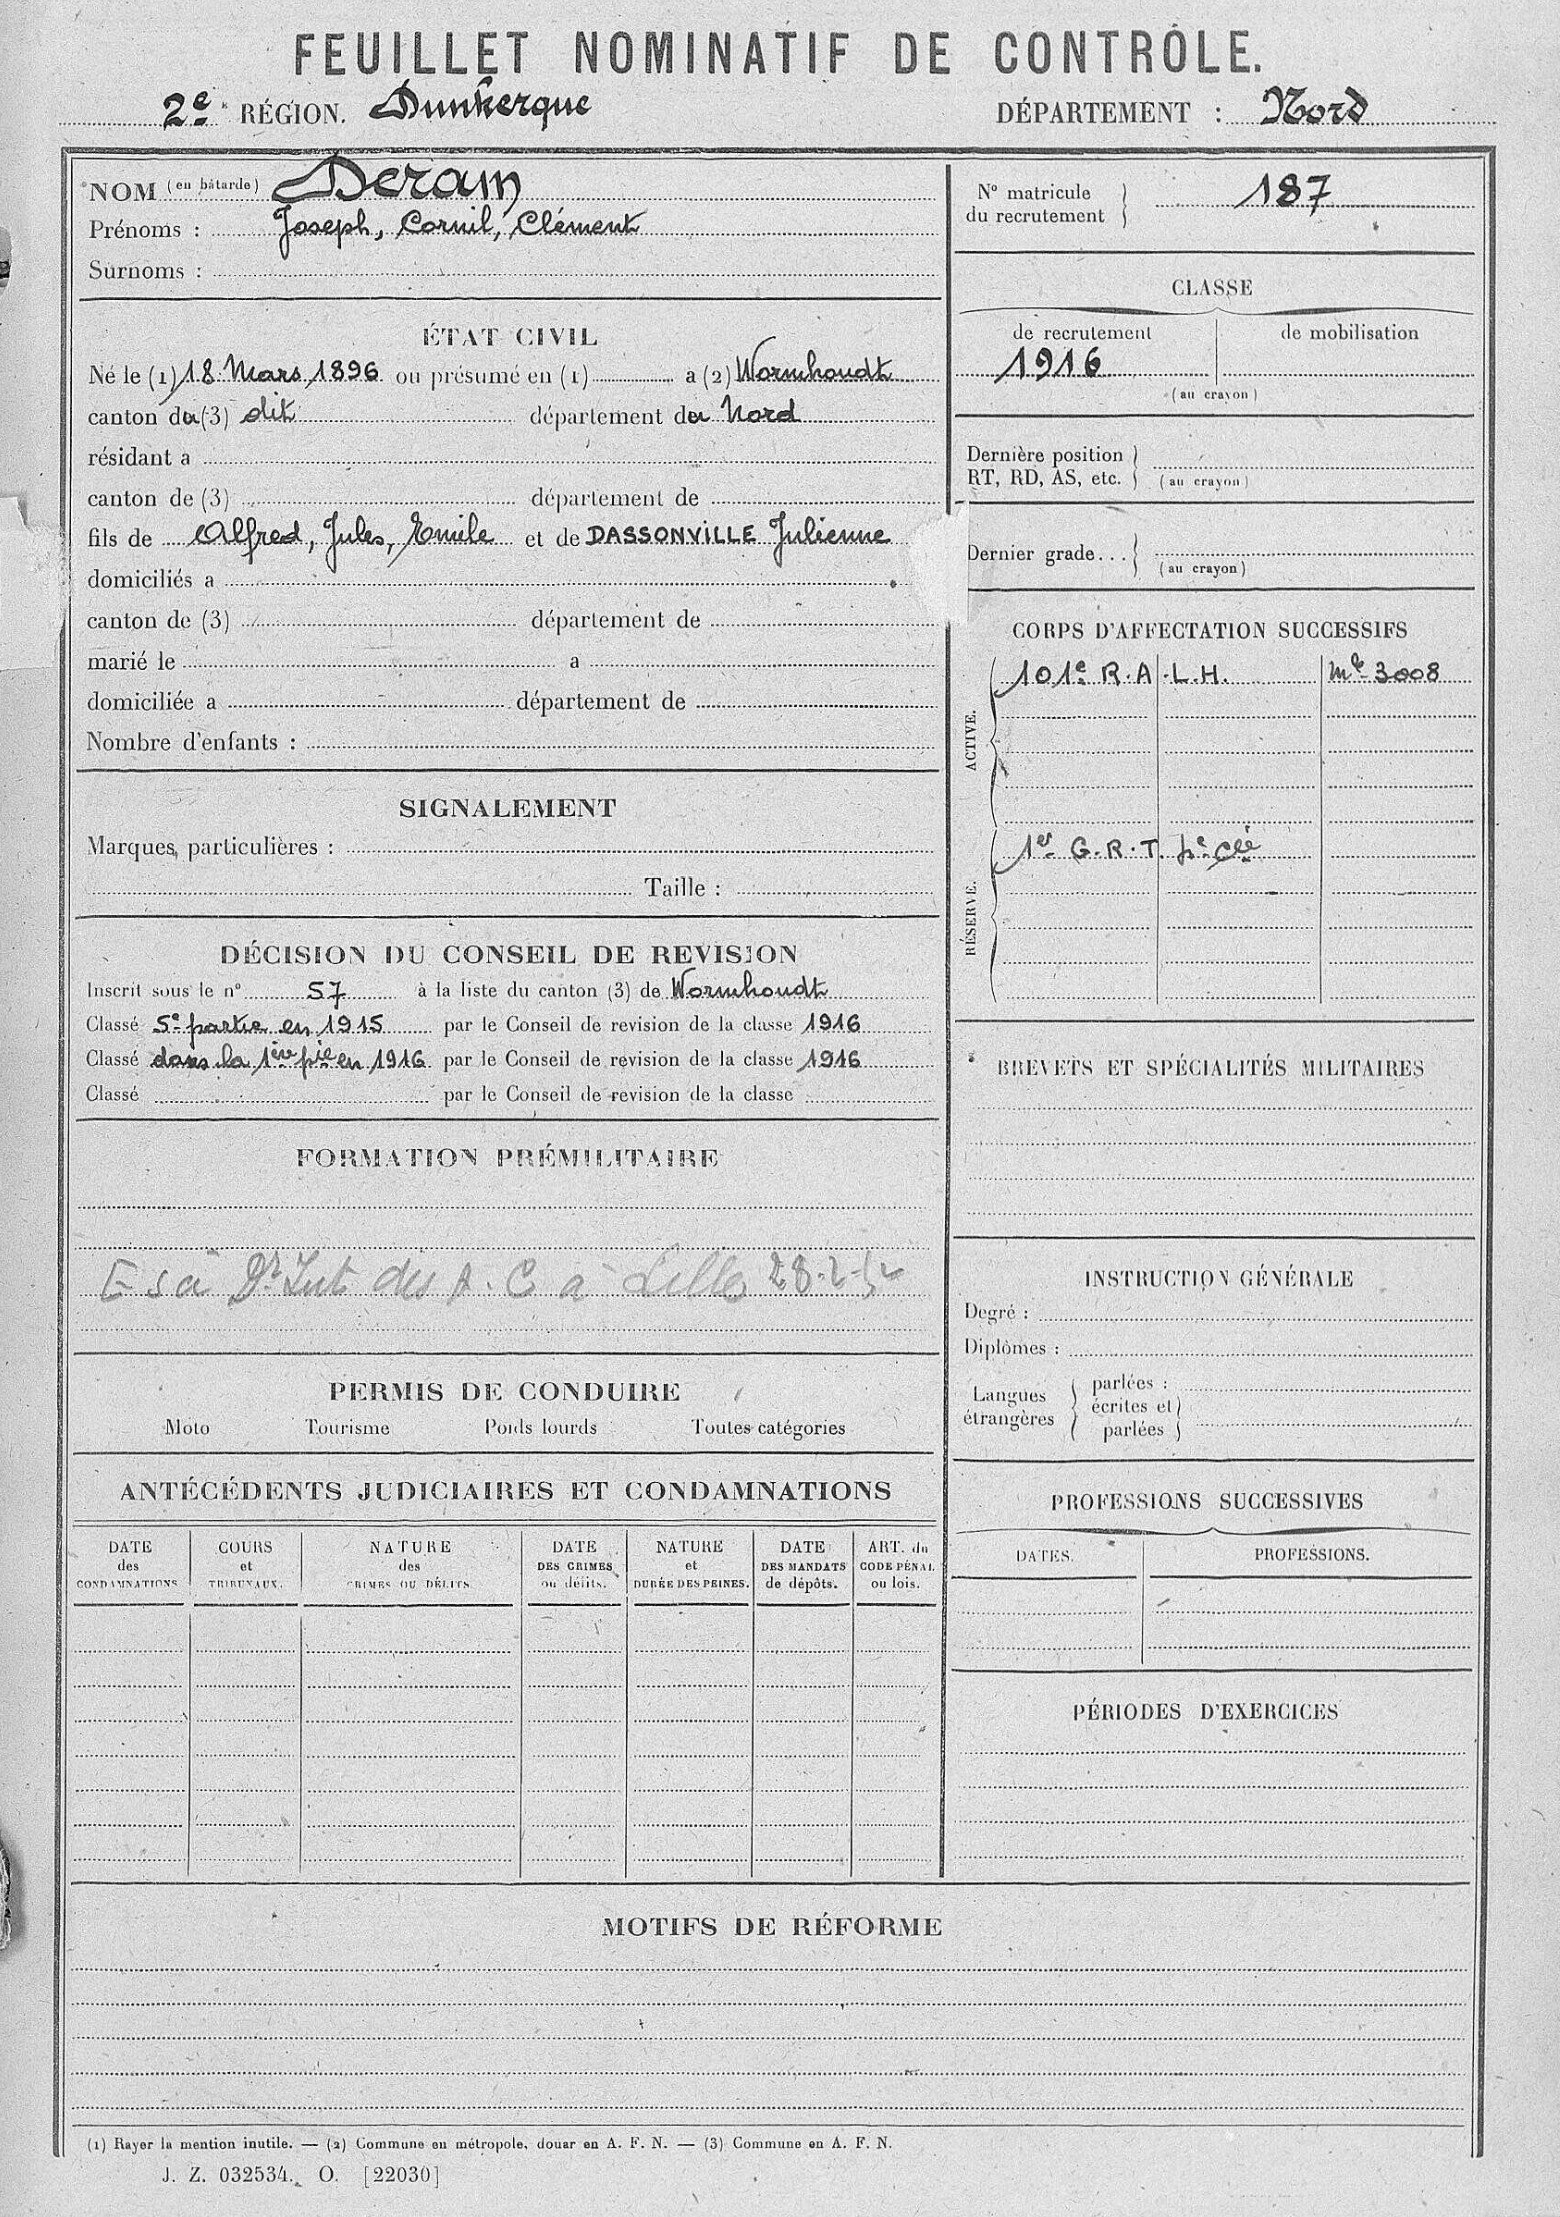 FEUILLET NOMINATIF DE CONTRÔLE.
2e RÉGION. Dunkerque
DÉPARTEMENT : Nord
NOM (en bâtarde) Deram
Prénoms : Joseph, Cornil, Clément
Surnoms :
ÉTAT CIVIL
Né le (1) 18 Mars 1896 ou présumé en (1) a (2) Wormhoudt
canton du (3) dit département du Nord
résidant a
canton de (3) département de
fils de Alfred, Jules, Emile et de DASSONVILLE Julienne
domiciliés a
canton de (3) département de
marié le a
domiciliée a département de
Nombre d'enfants :
SIGNALEMENT
Marques particulières :
Taille :
DÉCISION DU CONSEIL DE REVISION
Inscrit sous le n° 57 à la liste du canton (3) de Wormhoudt
Classé 5e partie en 1915 par le Conseil de revision de la classe 1916
Classé dans la 1ère pie en 1916 par le Conseil de revision de la classe 1916
Classé par le Conseil de revision de la classe
FORMATION PRÉMILITAIRE
E s à Dr Int des A. C à Lille 28-2-
PERMIS DE CONDUIRE
Moto Tourisme Poids lourds Toutes catégories
ANTÉCÉDENTS JUDICIAIRES ET CONDAMNATIONS
DATE des CONDAMNATIONS
COURS et TRIBUNAUX.
NATURE des CRIMES OU DÉLITS.
DATE DES CRIMES ou délits.
NATURE et DURÉE DES PEINES.
DATE DES MANDATS de dépôts.
ART. du CODE PÉNAL ou lois.
N° matricule du recrutement 187
CLASSE
de recrutement de mobilisation
1916
(au crayon)
Dernière position
RT, RD, AS, etc. (au crayon)
Dernier grade... (au crayon)
CORPS D'AFFECTATION SUCCESSIFS
ACTIVE.
101e R.A.L.H. Mle 3008
RÉSERVE.
1er G.R.T. pe cié
BREVETS ET SPÉCIALITÉS MILITAIRES
INSTRUCTION GÉNÉRALE
Degré :
Diplômes :
Langues étrangères
parlées :
écrites et parlées
PROFESSIONS SUCCESSIVES
DATES. PROFESSIONS.
PÉRIODES D'EXERCICES
MOTIFS DE RÉFORME
(1) Rayer la mention inutile. — (2) Commune en métropole, douar en A. F. N. — (3) Commune en A. F. N.
J. Z. 032534. O. [22030]